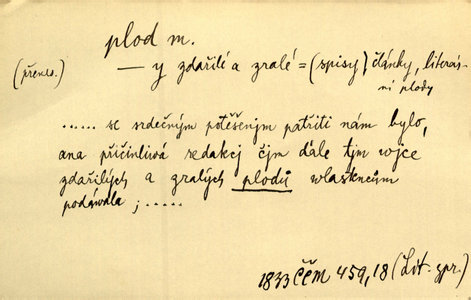 plod m.
(přenes.) — y zdařilé a zralé = (spisy) články, literár-
ní plody
...... se srdečným potěšenjm patřiti nám bylo,
ana přičinliwá redakcj čjm dále tjm wjce
zdařilých a zralých plodů wlastencům
podáwala ; .....
1833 ČČM 459,18 (Lit. zpr.)